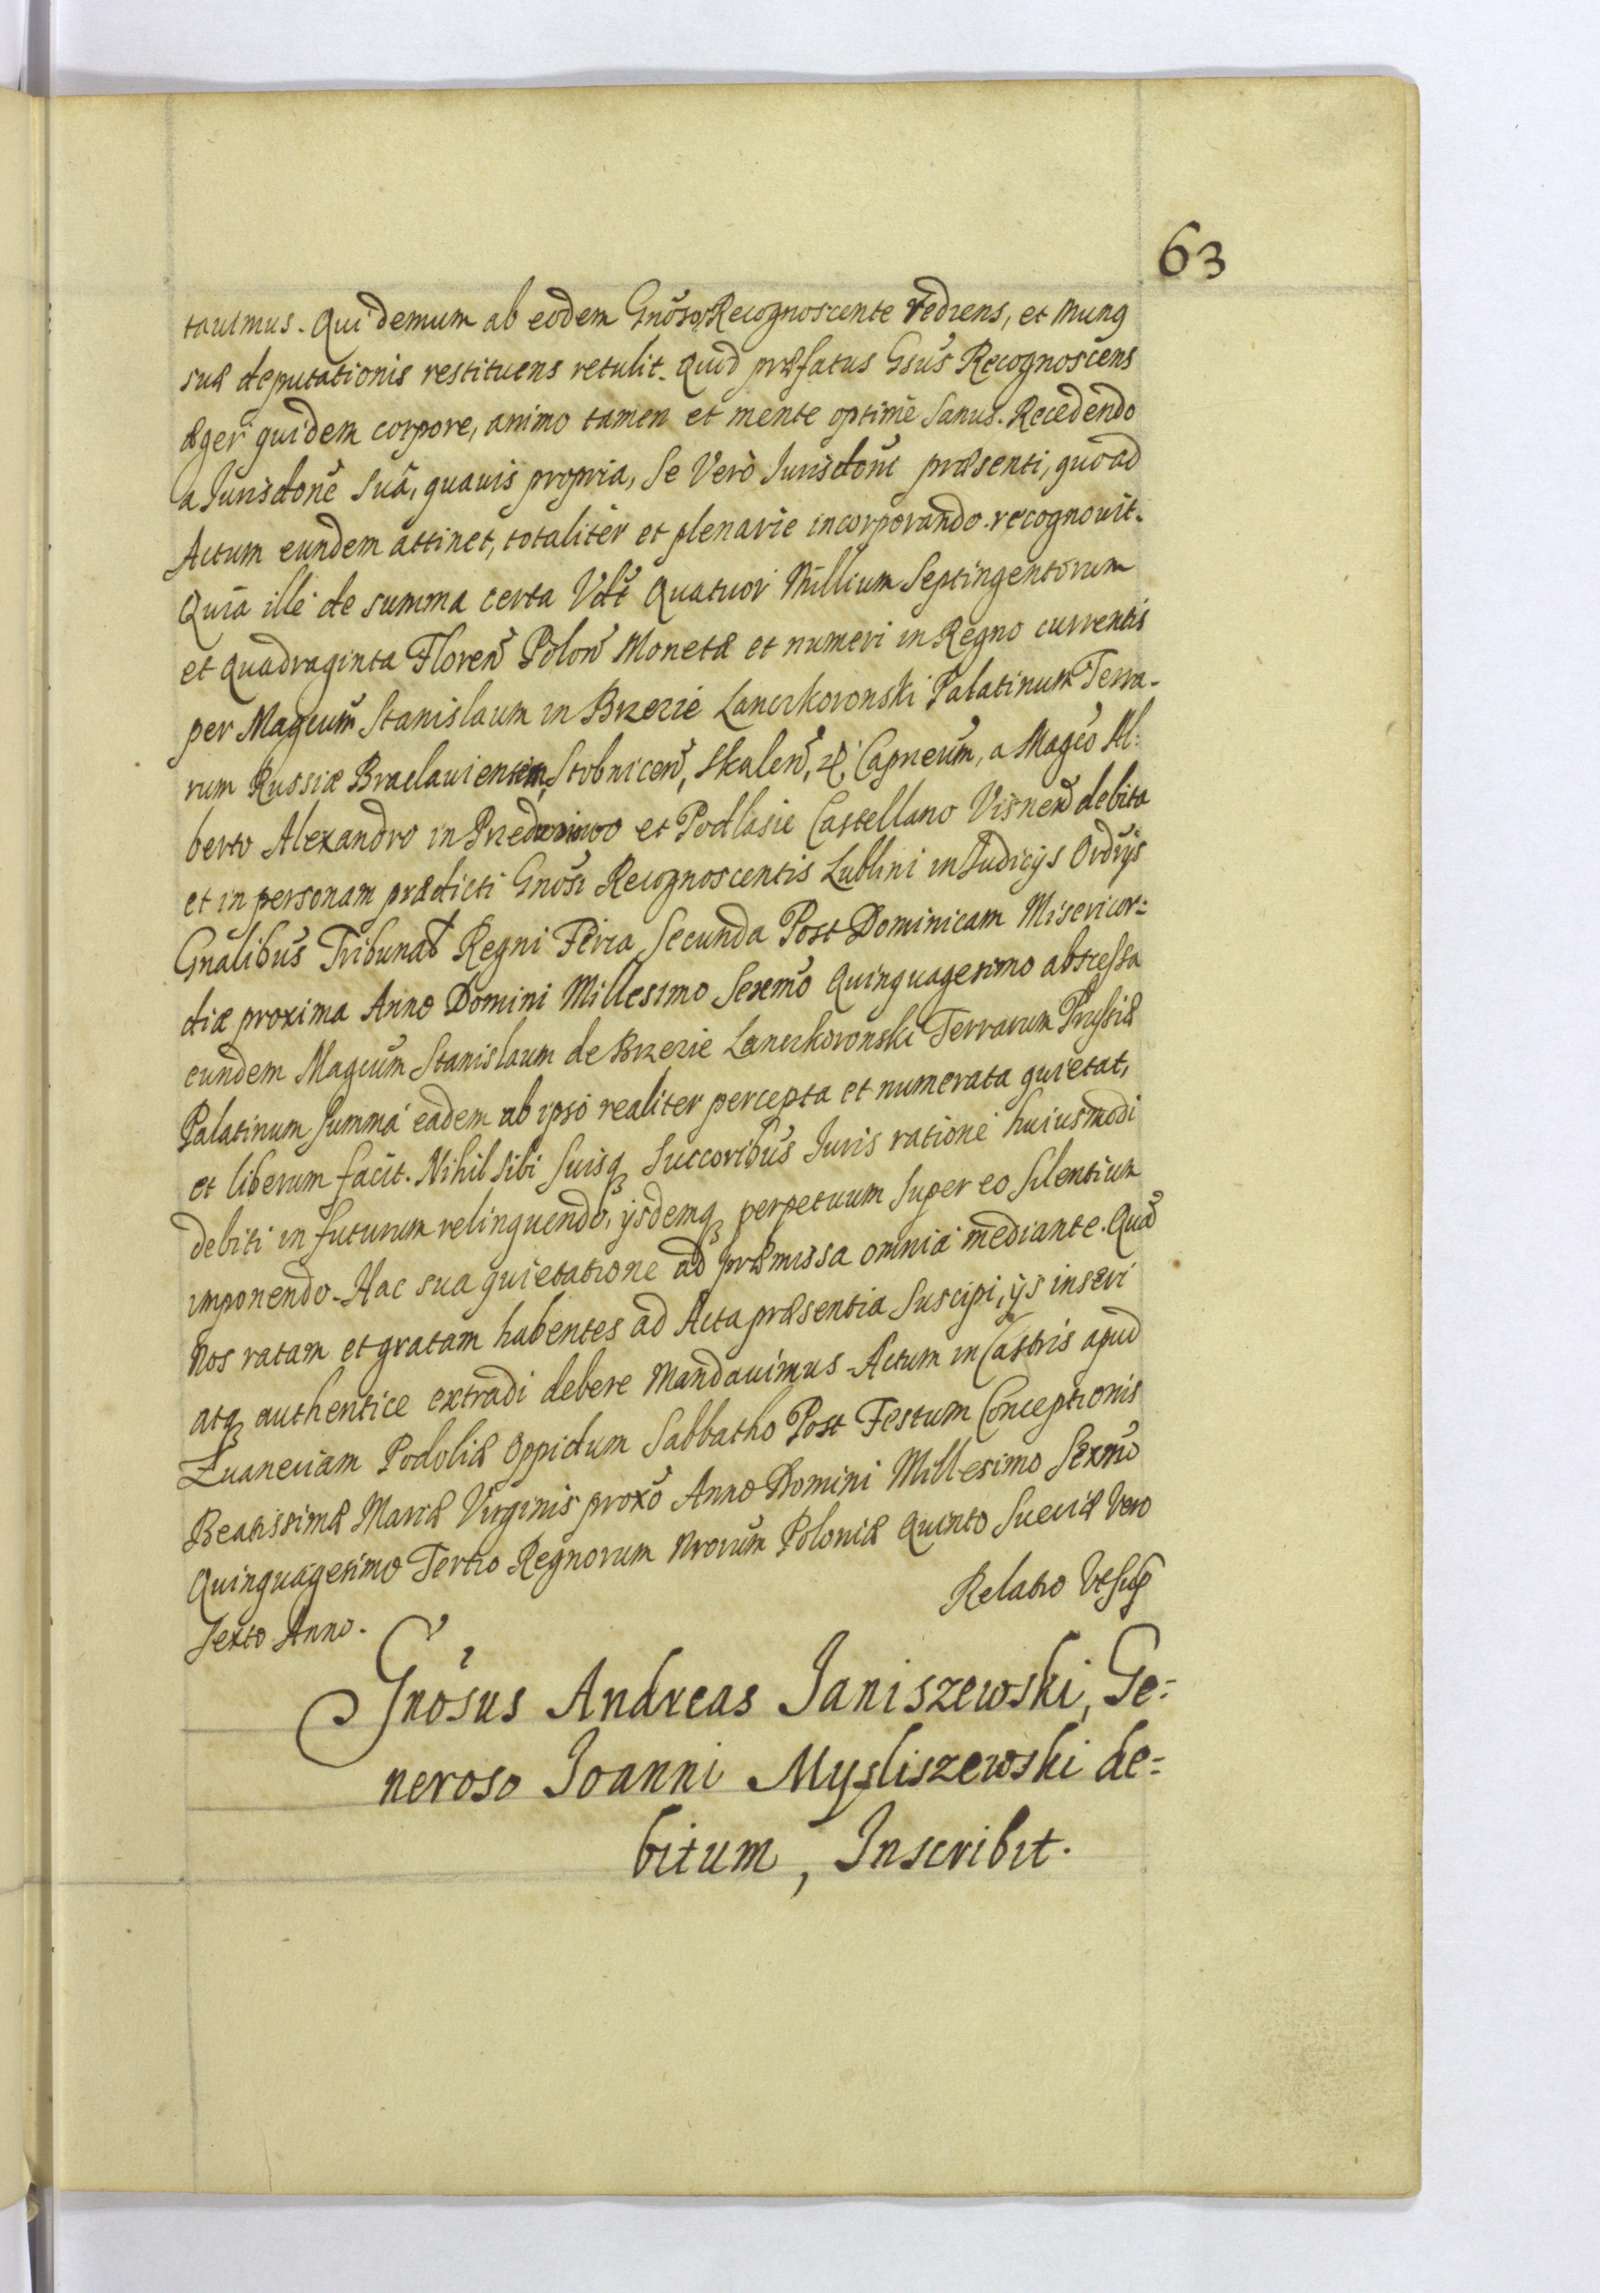 63
tauimus. Qui demum ab eodem Gnoso Recognoscente rediens, et munq
suæ deputationis restituens retulit. Quid præfatus Gsus Recognoscens
æger quidem corpore, animo tamen et mente optime Sanus. Recedendo
a Jurisdone Sua, quauis propria, Se Vero Jurisdoni præsenti, quoad
Actum eundem attinet, totaliter et plenarie incorporando. recognouit.
Quia ille de summa certa Vdt Quatuor Millium Septingentorum
et Quadraginta Floren Polon Monetæ et numeri in Regno currentis
per Magcum Stanislaum in Brzezie Lanczkoronski Palatinum Terra-
rum Russiæ Braclauiensem, Stobnicen, Skalen, &, Capneum, a Magco Al:
berto Alexandro in et Podlasie Castellano Visnen debita
et in personam prædicti Gnosi Recognoscentis Lublini in Judicijs Ordrijs
Gnalibus Tribunat Regni Feria Secunda Post Dominicam Misericor:
diæ proxima Anno Domini Millesimo Sexmo Quinquagesimo abscessa
eundem Magcum Stanislaum de Brzezie Lanczkoronski Terrarum Prussiæ
Palatinum Summa eadem ab ipso realiter percepta et numerata quietat,
et liberum facit. Nihil Sibi Suisq Succoribus Juris ratione huiusmodi
debiti in futurum relinquendo, ijsdemq perpetuum Super eo Silentium
imponendo. Hac sua quietatione ad præmissa omnia mediante. Qua
Nos ratam et gratam habentes ad Acta præsentia Suscipi, ijs inseri
atq authentice extradi debere Mandauimus. Actum in Castris apud
Zuaneciam Podoliæ Oppidum Sabbatho Post Festum Conceptionis
Beatissimæ Mariæ Virginis proxo Anno Domini Millesimo Sexmo
Quinquagesimo Tertio Regnorum Nrorum Poloniæ Quinto Sueciæ Vero
Sexto Anno.
Relatio Ut Sup
Gnosus Andreas Janiszewski, Ge:
neroso Joanni Mysliszewski de:
bitum, Inscribit.